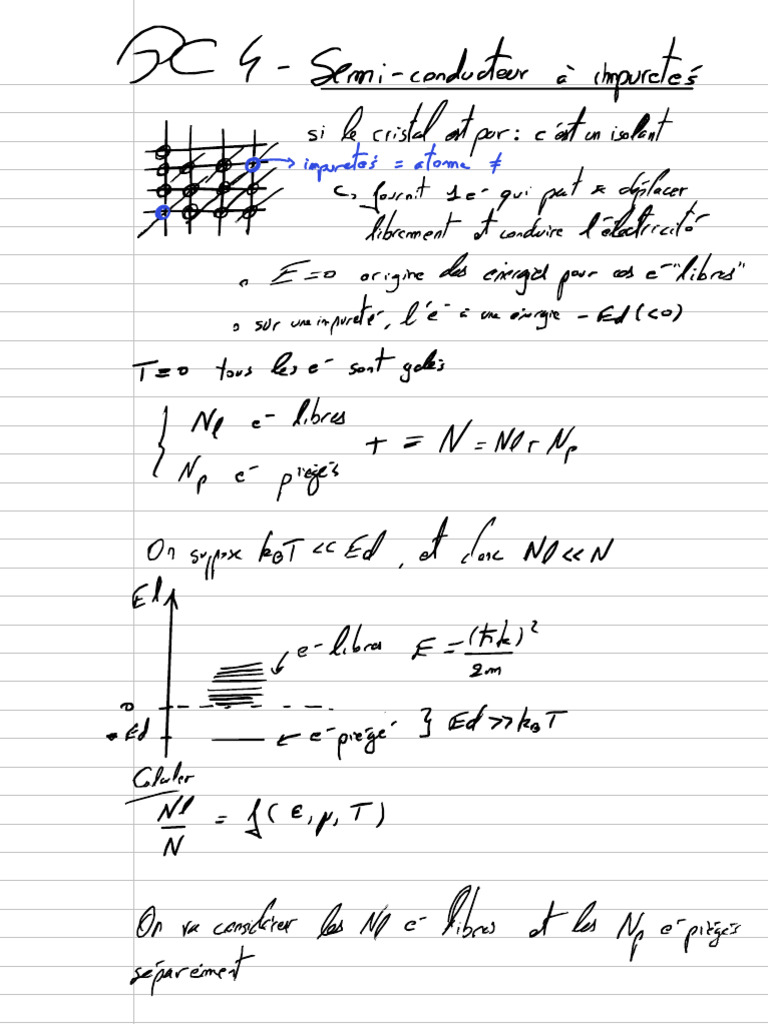 PC 4 - Semi-conducteur à impuretés
si le cristal est pur : c'est un isolant
impuretés = atome ≠
↳ fournit 1 e⁻ qui peut se déplacer
librement et conduire l'électricité
• E=0 origine des énergies pour ces e⁻ "libres"
• sur une impureté, l'e⁻ a une énergie - Ed (<0)
T=0 tous les e⁻ sont gelés
{ Nl e⁻ libres
Np e⁻ piégés
+ = N = Nl + Np
On suppose k_BT << Ed, et donc Nl << N
E
0
- Ed
← e⁻ libres E = (ħk)²/2m
← e⁻ piégé } Ed >> k_BT
Calculer
Nl/N = f(e, μ, T)
On va considérer les Nl e⁻ libres et les Np e⁻ piégés
séparément